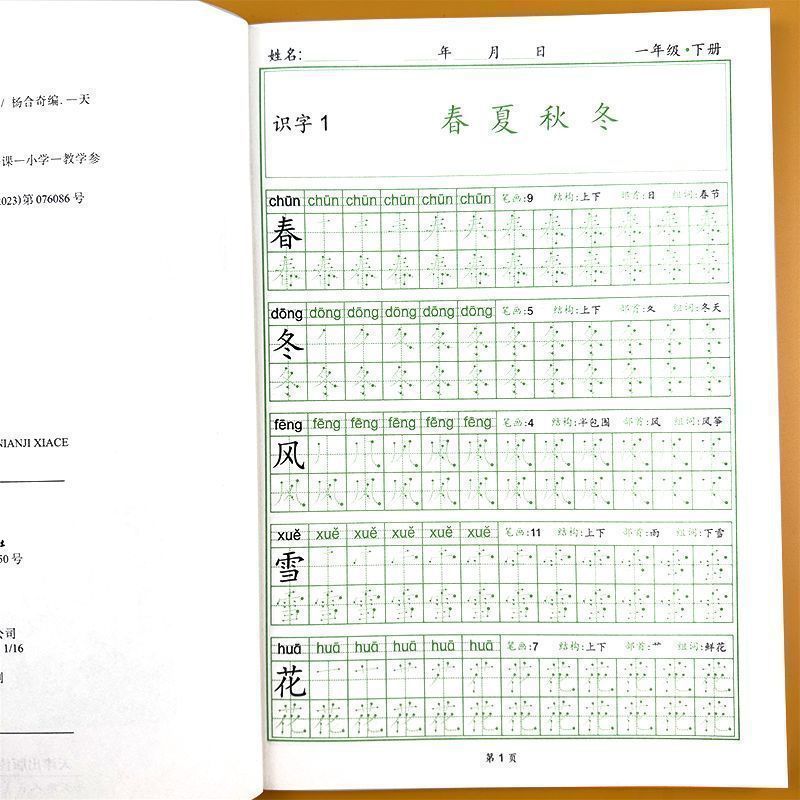 / 杨合奇编. 一天
课—小学—教学参
2023)第 076086 号
NIANJI XIACE
50 号
公司
1/16
姓名: 年 月 日 一年级·下册
识字 1 春夏秋冬
chūn chūn chūn chūn chūn chūn 笔画:9 结构:上下 部首:日 组词:春节
春
dōng dōng dōng dōng dōng dōng 笔画:5 结构:上下 部首:夂 组词:冬天
冬
fēng fēng fēng fēng fēng fēng 笔画:4 结构:半包围 部首:风 组词:风筝
风
xuě xuě xuě xuě xuě xuě 笔画:11 结构:上下 部首:雨 组词:下雪
雪
huā huā huā huā huā huā 笔画:7 结构:上下 部首:艹 组词:鲜花
花
第 1 页